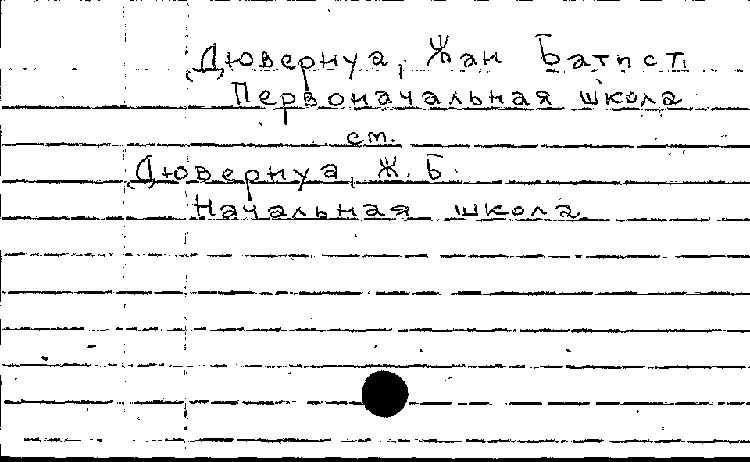 Дювернуа, Жан Батист
Первоначальная школа
см.
Дювернуа, Ж. Б.
Начальная школа